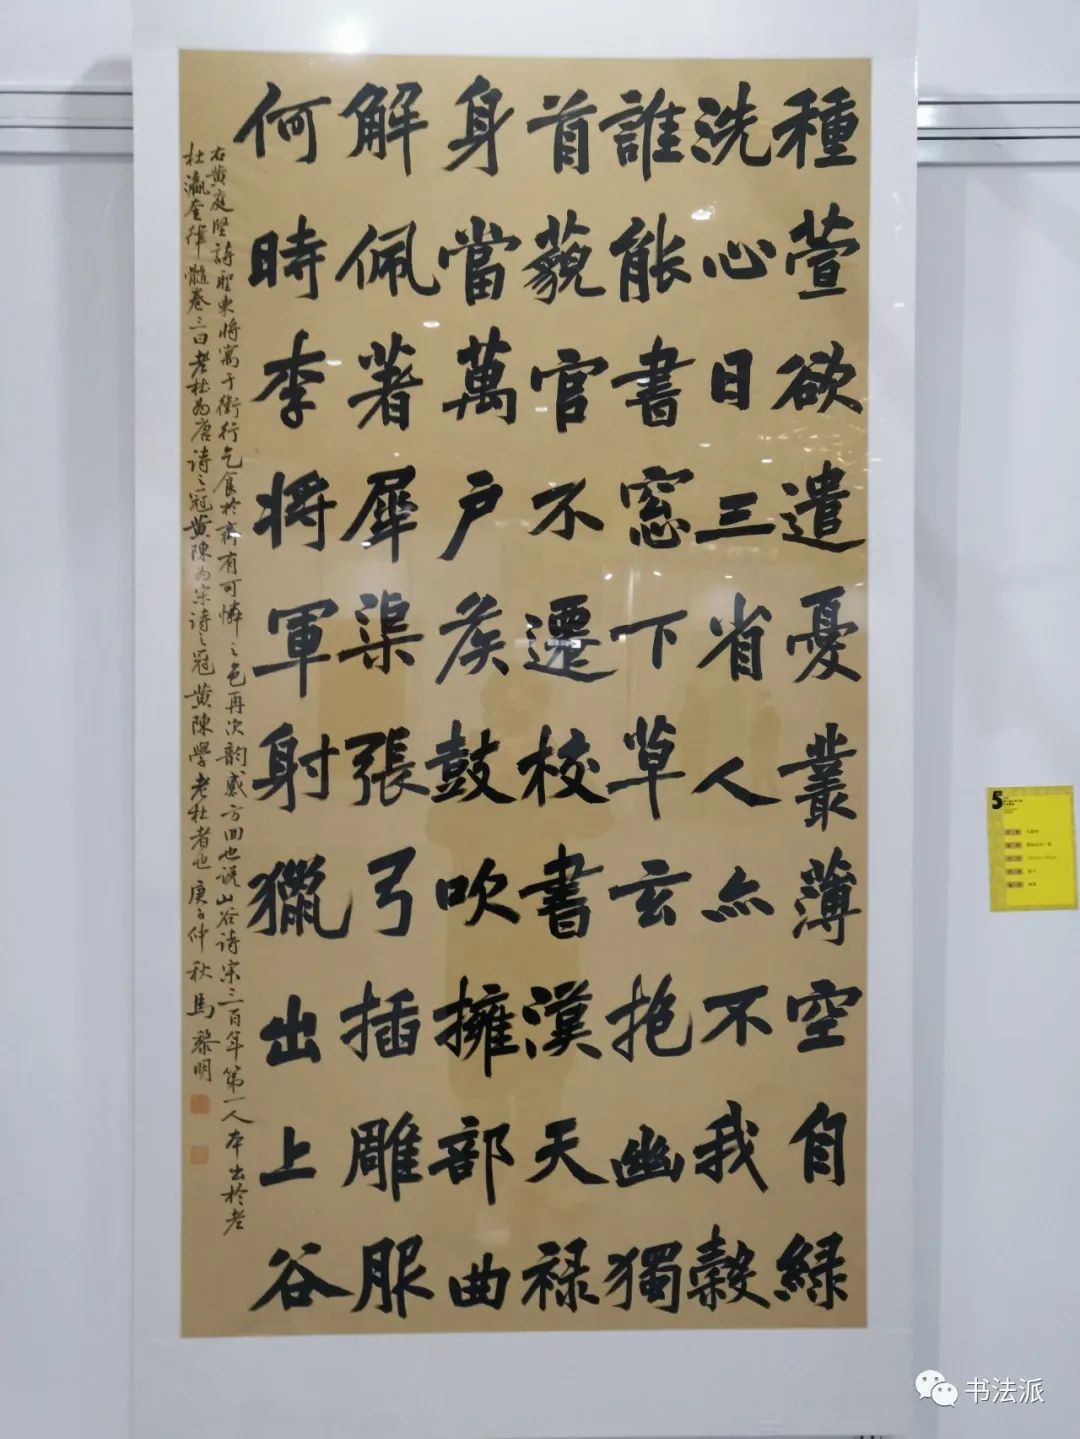 種萱欲遣憂叢薄空自綠
洗心日三省人亦不我穀
誰能書窓下草玄抱幽獨
首藐官不遷校書漢天禄
身當萬戶矦鼓吹擁部曲
解佩著犀渠張弓插雕服
何時李將軍射獵出上谷
右黄庭坚詩聖東将寓于衛行乞食於齊有可憐之色再次韵感方回也谈山谷诗宋三百年第一人本出於老
杜瀛奎律髓卷三曰老杜为唐诗之冠黄陳为宋诗之冠黄陳學老杜者也庚子仲秋馬黎明
5
书法派